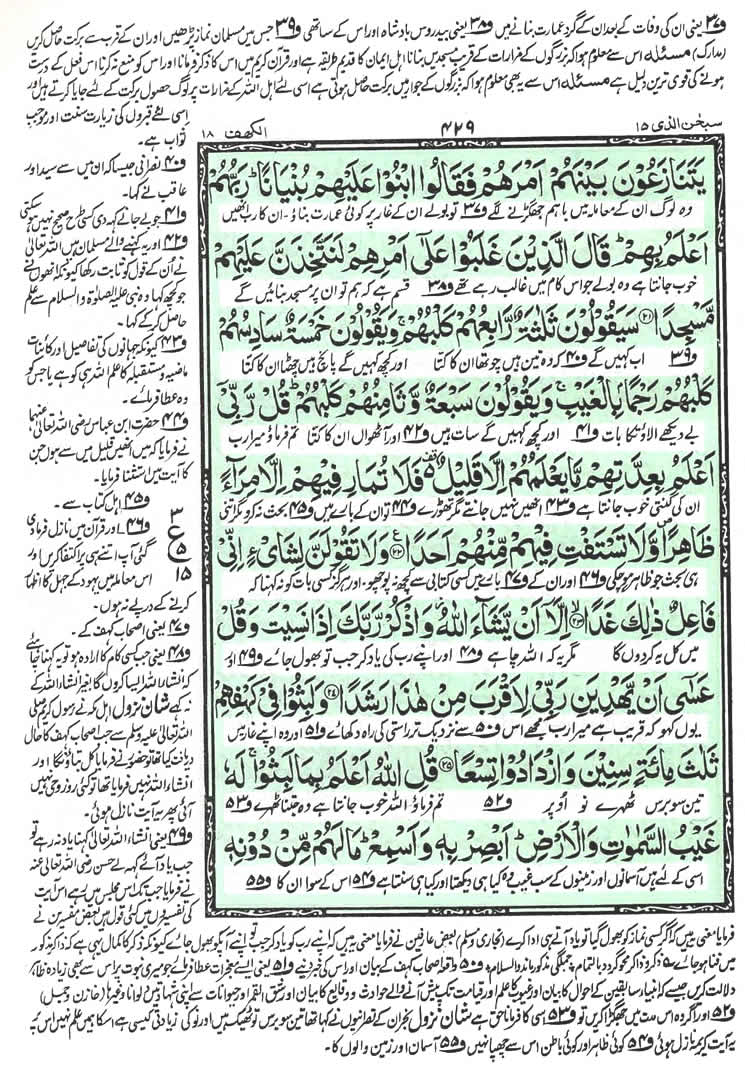 و۳۷ یعنی ان کی وفات کے بعد ان کے گرد عمارت بنانے میں و۳۸ یعنی بیدروس بادشاہ اور اس کے ساتھی و۳۹ جس میں مسلمان نماز پڑھیں اور ان کے قرب سے برکت حاصل کریں
(مدارک) مسئلہ اس سے معلوم ہوا کہ بزرگوں کے مزارات کے قریب مسجدیں بنانا اہل ایمان کا قدیم طریقہ ہے اور قرآن کریم میں اس کا ذکر فرمانا اور اس کو منع نہ کرنا اس فعل کے درست
ہونے کی قوی ترین دلیل ہے مسئلہ اس سے یہ بھی معلوم ہوا کہ بزرگوں کے جوار میں برکت حاصل ہوتی ہے اسی لئے اہل اللہ کے مزارات پر لوگ حصول برکت کے لئے جایا کرتے ہیں اور
اسی لئے قبروں کی زیارت سنت اور موجب
ثواب ہے۔
سبحٰن الذی ۱۵
۴۲۹
الکھف ۱۸
يَتَنَازَعُوْنَ بَيْنَهُمْ اَمْرَهُمْ فَقَالُوا ابْنُوْا عَلَيْهِمْ بُنْيَانًا ؕ رَبُّهُمْ
وہ لوگ ان کے معاملہ میں باہم جھگڑنے لگے و۳۷ تو بولے ان کے غار پر کوئی عمارت بناؤ۔ ان کا رب انھیں
اَعْلَمُ بِهِمْ ؕ قَالَ الَّذِيْنَ غَلَبُوْا عَلٰۤى اَمْرِهِمْ لَنَتَّخِذَنَّ عَلَيْهِمْ
خوب جانتا ہے وہ بولے جو اس کام میں غالب رہے تھے و۳۸ قسم ہے کہ ہم تو ان پر مسجد بنائیں گے
مَّسْجِدًا ﴿۲۱﴾ سَيَقُوْلُوْنَ ثَلٰثَةٌ رَّابِعُهُمْ كَلْبُهُمْ ۚ وَيَقُوْلُوْنَ خَمْسَةٌ سَادِسُهُمْ
و۳۹ اب کہیں گے و۴۰ کہ وہ تین ہیں چوتھا ان کا کتا اور کچھ کہیں گے پانچ ہیں چھٹا ان کا کتا
كَلْبُهُمْ رَجْمًۢا بِالْغَيْبِ ۚ وَيَقُوْلُوْنَ سَبْعَةٌ وَّثَامِنُهُمْ كَلْبُهُمْ ؕ قُلْ رَّبِّيْۤ
بے دیکھے الاؤتکا بات و۴۱ اور کچھ کہیں گے سات ہیں و۴۲ اور آٹھواں ان کا کتا تم فرماؤ میرا رب
اَعْلَمُ بِعِدَّتِهِمْ مَّا يَعْلَمُهُمْ اِلَّا قَلِيْلٌ ۫ فَلَا تُمَارِ فِيْهِمْ اِلَّا مِرَآءً
ان کی گنتی خوب جانتا ہے و۴۳ انھیں نہیں جانتے مگر تھوڑے و۴۴ تو ان کے بارے میں و۴۵ بحث نہ کرو مگر اتنی
ظَاهِرًا ۪ وَّلَا تَسْتَفْتِ فِيْهِمْ مِّنْهُمْ اَحَدًا ﴿۲۲﴾ وَلَا تَقُوْلَنَّ لِشَایْءٍ اِنِّيْ
ہی بحث جو ظاہر ہو چکی و۴۶ اور ان کے و۴۷ بارے میں کسی کتابی سے کچھ نہ پوچھو۔ اور ہرگز کسی بات کو نہ کہنا کہ
فَاعِلٌ ذٰلِكَ غَدًا ﴿۲۳﴾ اِلَّاۤ اَنْ يَّشَآءَ اللّٰهُ ؗ وَاذْكُرْ رَّبَّكَ اِذَا نَسِيْتَ وَقُلْ
میں کل یہ کردوں گا مگر یہ کہ اللہ چاہے و۴۸ اور اپنے رب کی یاد کر جب تو بھول جائے و۴۹ اور
عَسٰۤى اَنْ يَّهْدِيَنِ رَبِّيْ لِاَقْرَبَ مِنْ هٰذَا رَشَدًا ﴿۲۴﴾ وَلَبِثُوْا فِيْ كَهْفِهِمْ
یوں کہو کہ قریب ہے میرا رب مجھے اس و۵۰ سے نزدیک تر راستی کی راہ دکھائے و۵۱ اور وہ اپنے غار میں
ثَلٰثَ مِائَةٍ سِنِيْنَ وَازْدَادُوْا تِسْعًا ﴿۲۵﴾ قُلِ اللّٰهُ اَعْلَمُ بِمَا لَبِثُوْا ۚ لَهٗ
تین سو برس ٹھہرے نو اوپر و۵۲ تم فرماؤ اللہ خوب جانتا ہے وہ جتنا ٹھہرے و۵۳
غَيْبُ السَّمٰوٰتِ وَالْاَرْضِ ؕ اَبْصِرْ بِهٖ وَاَسْمِعْ ؕ مَا لَهُمْ مِّنْ دُوْنِهٖ
اسی کے لئے ہیں آسمانوں اور زمینوں کے سب غیب وہ کیا ہی دیکھتا اور کیا ہی سنتا ہے و۵۴ اس کے سوا ان کا و۵۵
و۴۰ نصرانی جیسا کہ ان میں سے سید اور
عاقب نے کہا۔
و۴۱ جو بے جانے کہہ دی کسی طرح صحیح نہیں ہو سکتی
و۴۲ اور یہ کہنے والے مسلمان ہیں اللہ تعالیٰ
نے ان کے قول کو ثابت رکھا کیونکہ انھوں نے
جو کچھ کہا وہ نبی علیہ الصلوٰۃ والسلام سے علم
حاصل کرکے کہا۔
و۴۳ کیونکہ جہانوں کی تفاصیل اور کائنات
ماضیہ و مستقبلہ کا علم اللہ ہی کو ہے یا جس کو
وہ عطا فرمائے۔
و۴۴ حضرت ابن عباس رضی اللہ تعالیٰ عنہما
نے فرمایا کہ میں انھیں قلیل میں سے ہوں جن
کا آیت میں استثنا فرمایا۔
و۴۵ اہل کتاب سے۔
و۴۶ اور قرآن میں نازل فرمادی
گئی آپ اتنے ہی پر اکتفا کریں اور
اس معاملہ میں یہود کے جہل کا اظہار
کرنے کے درپے نہ ہوں۔
۳
ع
۵
۱۵
و۴۷ یعنی اصحاب کہف کے۔
و۴۸ یعنی جب کسی کام کا ارادہ ہو تو یہ کہنا چاہئے
کہ انشاء اللہ ایسا کروں گا بغیر انشاء اللہ کے
نہ کہے شان نزول اہل مکہ نے رسول کریم صلی
اللہ تعالیٰ علیہ وسلم سے جب اصحاب کہف کا حال
دریافت کیا تھا تو حضور نے فرمایا کل بتاؤں گا اور
انشاء اللہ نہیں فرمایا تھا تو کئی روز وحی نہیں
آئی پھر یہ آیت نازل ہوئی۔
و۴۹ یعنی انشاء اللہ تعالیٰ کہنا یاد نہ رہے تو
جب یاد آئے کہہ لے حسن رضی اللہ تعالیٰ عنہ
نے فرمایا جب تک اس مجلس میں رہے اس آیت
کی تفسیروں میں کئی قول ہیں بعض مفسرین نے
فرمایا معنی یہ ہیں کہ اگر کسی نماز کو بھول گیا تو یاد آتے ہی ادا کرے (بخاری و مسلم) بعض عارفین نے فرمایا معنی یہ ہیں کہ اپنے رب کو یاد کر جب تو اپنے آپ کو بھول جائے کیونکہ ذکر کا کمال یہی ہے کہ ذاکر مذکور
میں فنا ہو جائے و۵۰ واقعۂ اصحاب کہف کے بیان اور اس کی خبر دینے و۵۱ یعنی ایسے معجزات عطا فرمائے جو میری نبوت پر اس سے بھی زیادہ ظاہر
دلالت کریں جیسے کہ انبیاء سابقین کے احوال کا بیان اور غیوب کا علم اور قیامت تک پیش آنے والے حوادث و وقائع کا بیان اور شق القمر اور حیوانات سے اپنی شہادتیں دلوانا وغیرہا (خازن وجمل)
و۵۲ اور اگر وہ اس مدت میں جھگڑا کریں تو و۵۳ اسی کا فرمانا حق ہے شان نزول نجران کے نصرانیوں نے کہا تھا تین سو برس تو ٹھیک ہیں اور نو کی زیادتی کیسی ہے اس کا ہمیں علم نہیں اس پر
یہ آیت کریمہ نازل ہوئی و۵۴ کوئی ظاہر اور کوئی باطن اس سے چھپا نہیں و۵۵ آسمان اور زمین والوں کا۔